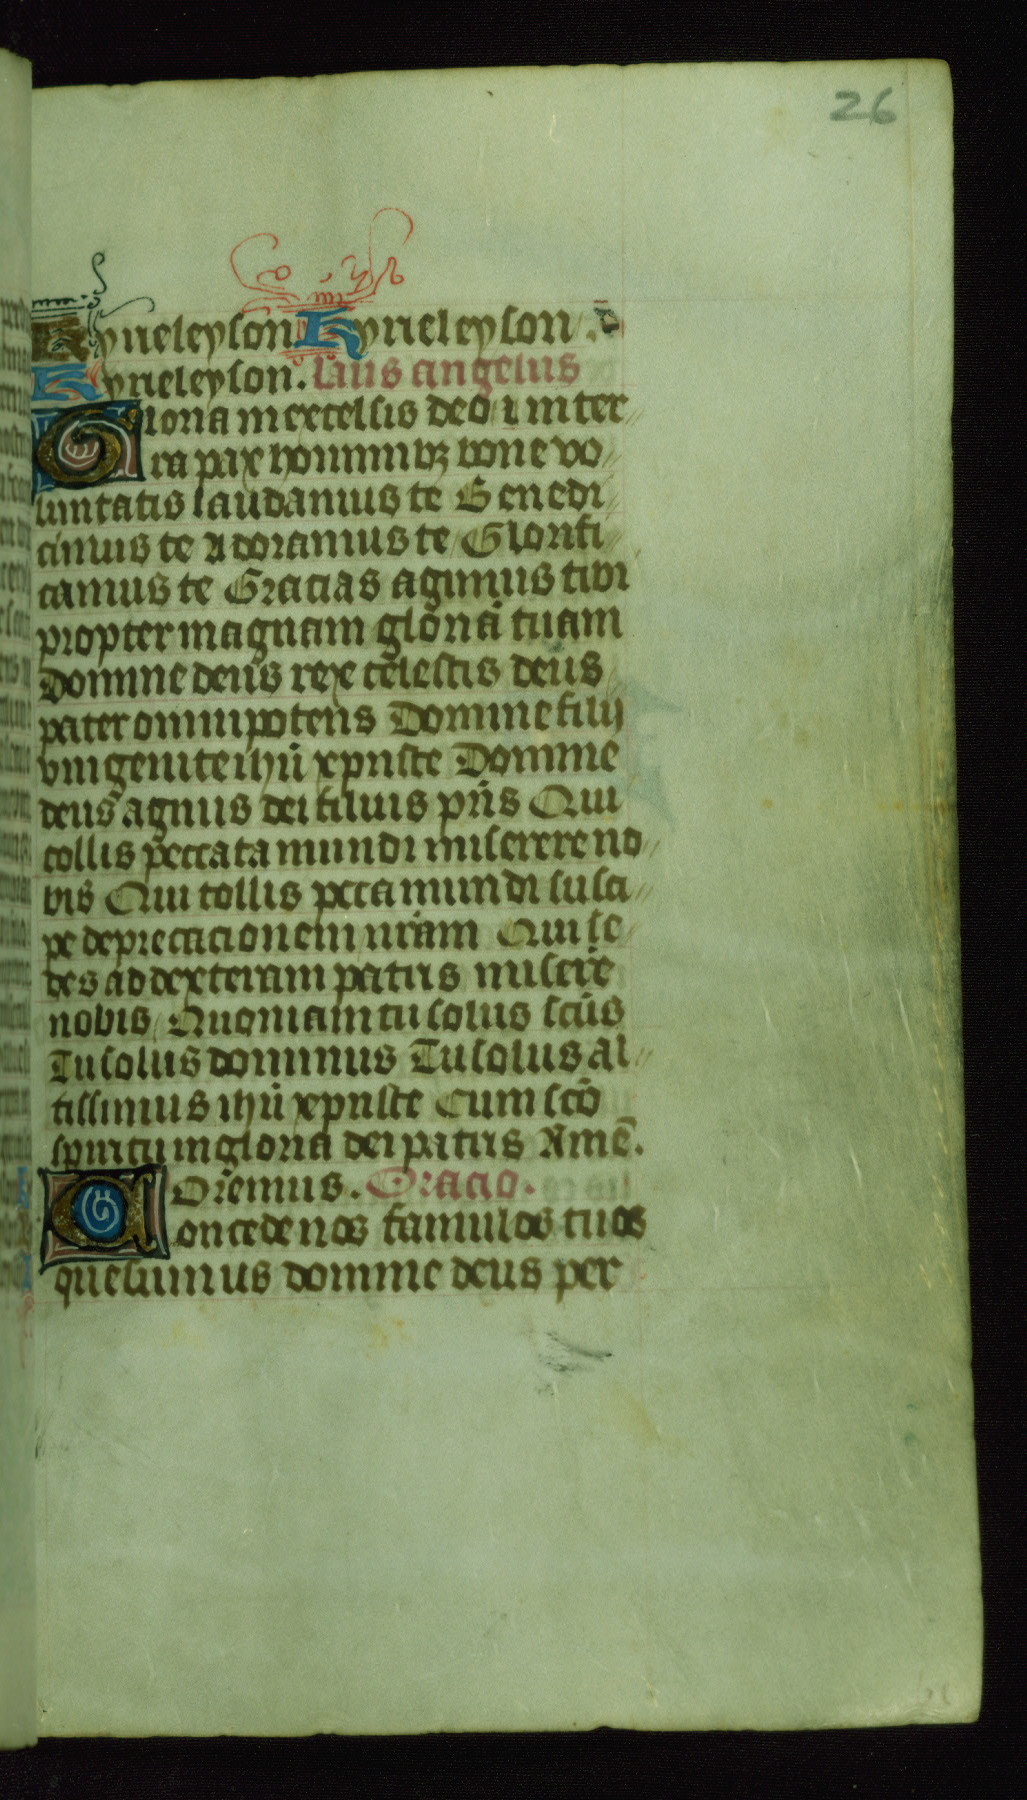 26
Kyrieleyson Kyrieleyson .
Kyrieleyson. Laus angelus
Gloria in excelsis deo i in ter
ra pax hominibꝫ bone vo
luntatis laudamus te Benedi
cimus te Adoramus te Glorifi
camus te Gracias agimus tibi
propter magnam gloriā tuam
Domine deus rex celestis deus
pater omnipotens Domine filij
vnigenite ihū xpriste Domine
deus agnus dei filius pr̄is Qui
tollis peccata mundi miserere no
bis Qui tollis pcca mundi susci
pe deprecacionem nr̄am Qui se
des ad dexteram patris miserē
nobis Quoniam tu solus sc̄us
Tu solus dominus Tu solus al
tissimus ihū xpriste Cum sc̄o
spiritu in gloria dei patris Amē.
Orēmus. Oracio.
Concede nos famulos tuos
quesumus domine deus per